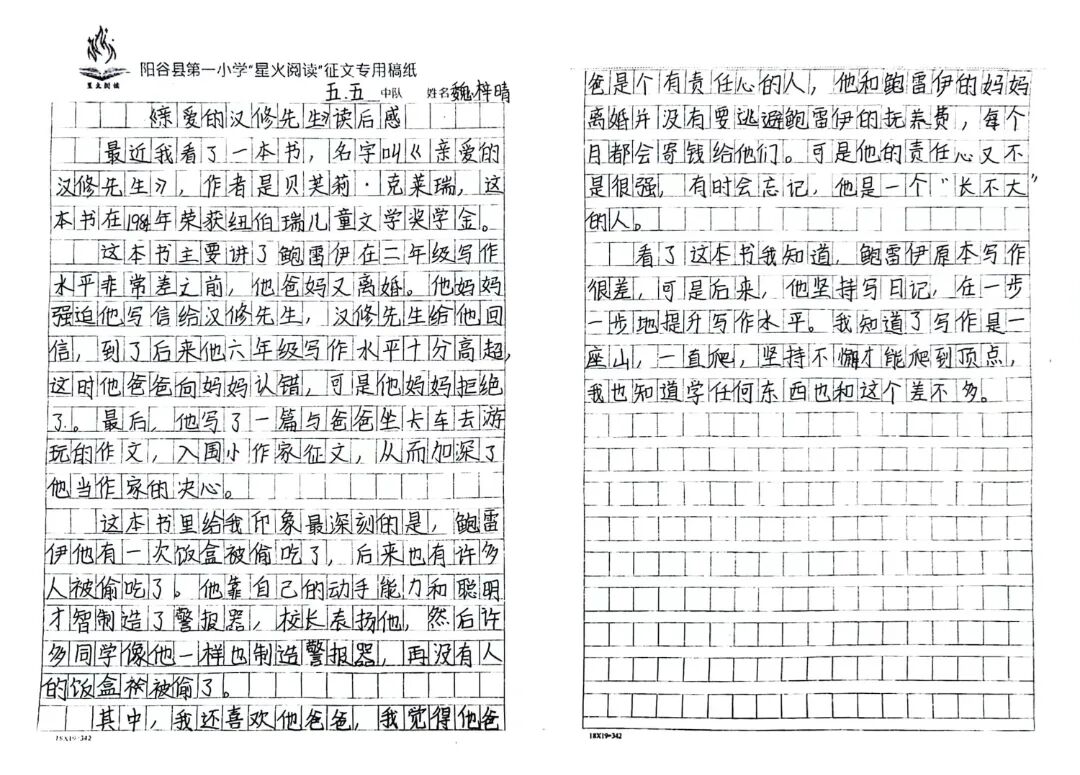 星火阅读
阳谷县第一小学“星火阅读”征文专用稿纸
五.五 中队 姓名 魏梓晴
《亲爱的汉修先生》读后感
最近我看了一本书，名字叫《亲爱的
汉修先生》，作者是贝芙莉·克莱瑞，这
本书在1984年荣获纽伯瑞儿童文学奖学金。
这本书主要讲了鲍雷伊在二年级写作
水平非常差之前，他爸妈又离婚。他妈妈
强迫他写信给汉修先生，汉修先生给他回
信，到了后来他六年级写作水平十分高超，
这时他爸爸向妈妈认错，可是他妈妈拒绝
了。最后，他写了一篇与爸爸坐卡车去游
玩的作文，入围小作家征文，从而加深了
他当作家的决心。
这本书里给我印象最深刻的是，鲍雷
伊他有一次饭盒被偷吃了，后来也有许多
人被偷吃了。他靠自己的动手能力和聪明
才智制造了警报器，校长表扬他，然后许
多同学像他一样也制造警报器，再没有人
的饭盒被偷了。
其中，我还喜欢他爸爸，我觉得他爸
18X19=342
爸是个有责任心的人，他和鲍雷伊的妈妈
离婚并没有要逃避鲍雷伊的抚养费，每个
月都会寄钱给他们。可是他的责任心又不
是很强，有时会忘记，他是一个“长不大”
的人。
看了这本书我知道，鲍雷伊原本写作
很差，可是后来，他坚持写日记，在一步
一步地提升写作水平。我知道了写作是一
座山，一直爬，坚持不懈才能爬到顶点，
我也知道学任何东西也和这个差不多。
18X19=342